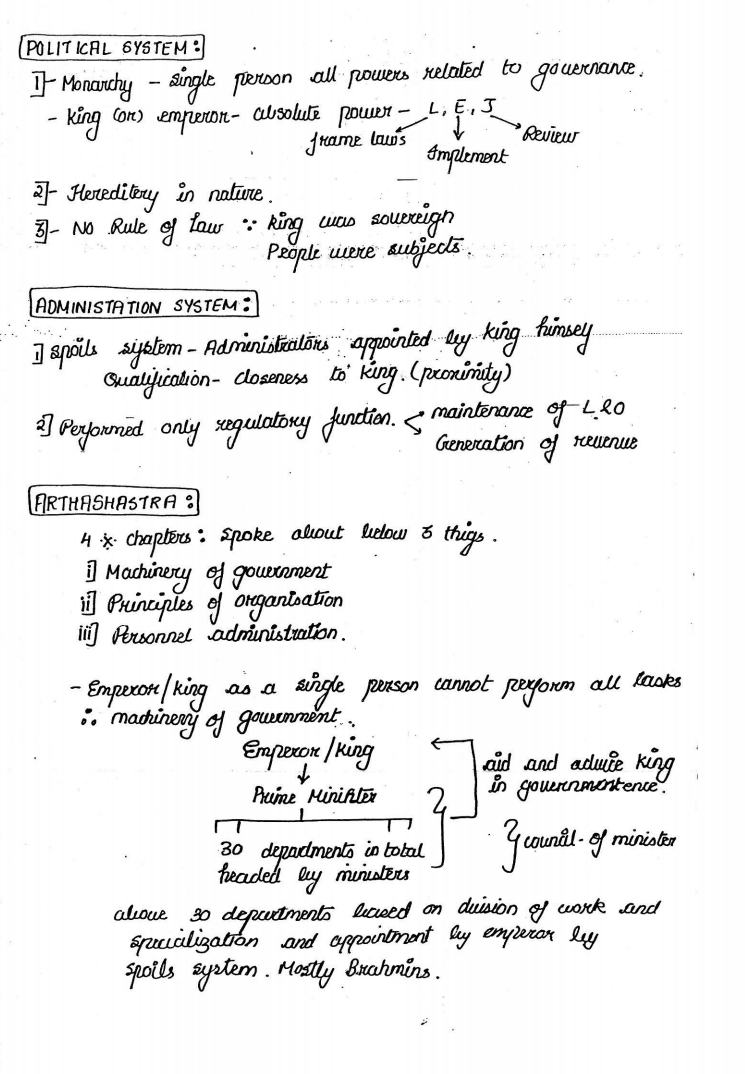 POLITICAL SYSTEM:
1]- Monarchy - single person all powers related to governance.
- king (or) emperor - absolute power - L, E, J
frame laws
Implement
Review
2]- Hereditery in nature.
3]- No Rule of Law ∵ king was sovereign
People were subjects.
ADMINISTATION SYSTEM:
i] spoils system - Administrators appointed by king himsey
Qualification - closeness to king. (proximity)
2] Performed only regulatory function. < maintenance of L&O
Generation of revenue
ARTHASHASTRA:
4 * chapters: spoke about below 3 thigs.
i] Machinery of government
ii] Principles of organisation
iii] Personnel administration.
- Emperor/king as a single person cannot perform all tasks
∴ machinery of government.
Emperor/king
Prime Minister
30 departments in total
headed by ministers
aid and advice king
in
council of minister
above 30 departments based on division of work and
specialization and appointment by emperor by
spoils system. Mostly Brahmins.